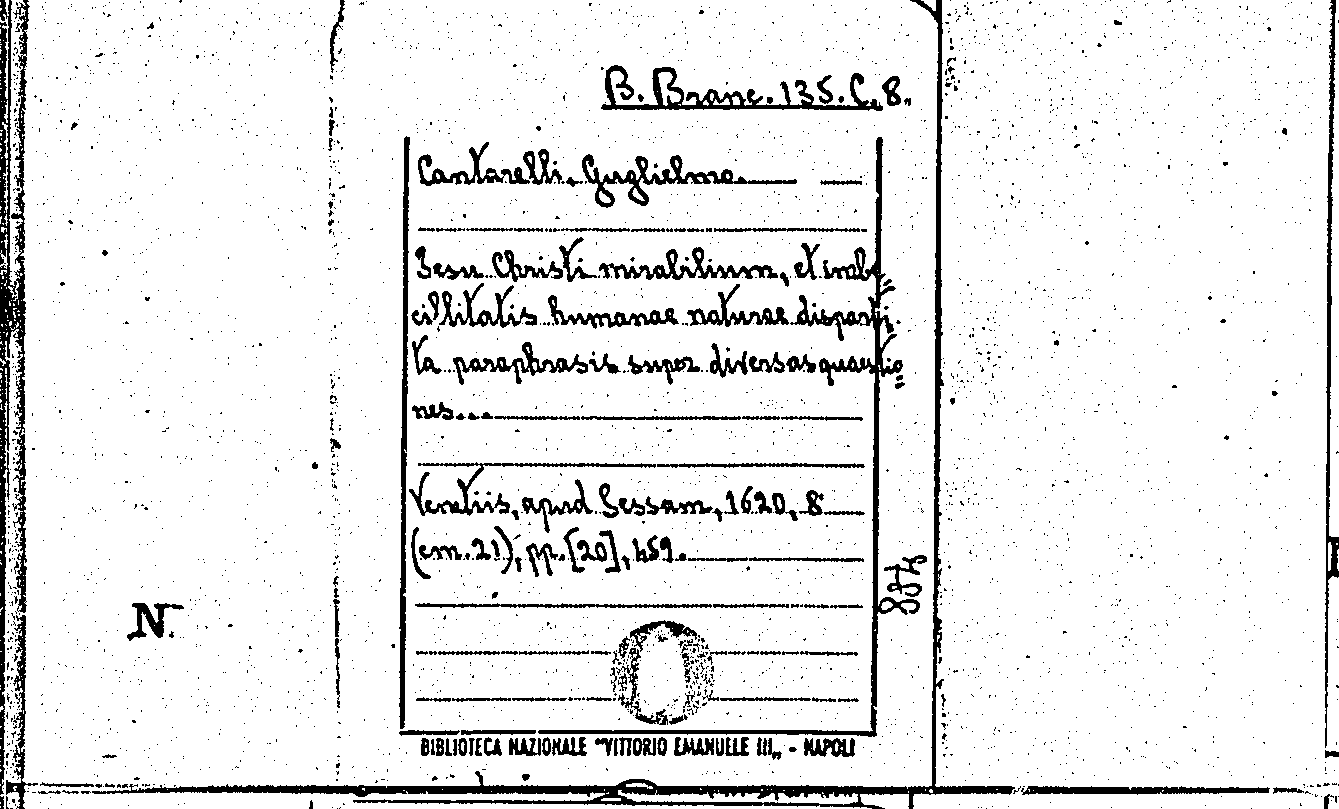 B. Branc. 135. C. 8.
Cantarelli, Guglielmo.
Jesu Christi mirabilium, et imbe=
cillitatis humanae naturae disparti=
ta paraphrasis super diversas quaestio=
nes...
Venetiis, apud Sessam, 1620, 8°
(cm. 21), pp. [20], 459.
BIBLIOTECA NAZIONALE "VITTORIO EMANUELE III„ - NAPOLI
N.